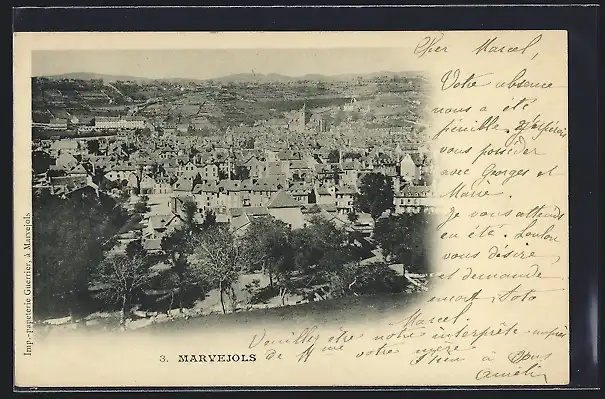 Cher Marcel,
Votre absence
nous a été
pénible. J'espérais
vous posséder
avec Georges et
Marie.
Je vous attends
en été. Loulou
vous désire
et demande
Toto
Marcel.
Veuillez être notre interprète auprès
de Mme votre mère.
à vous
3. MARVEJOLS
Imp.-papeterie Guerrier, à Marvejols